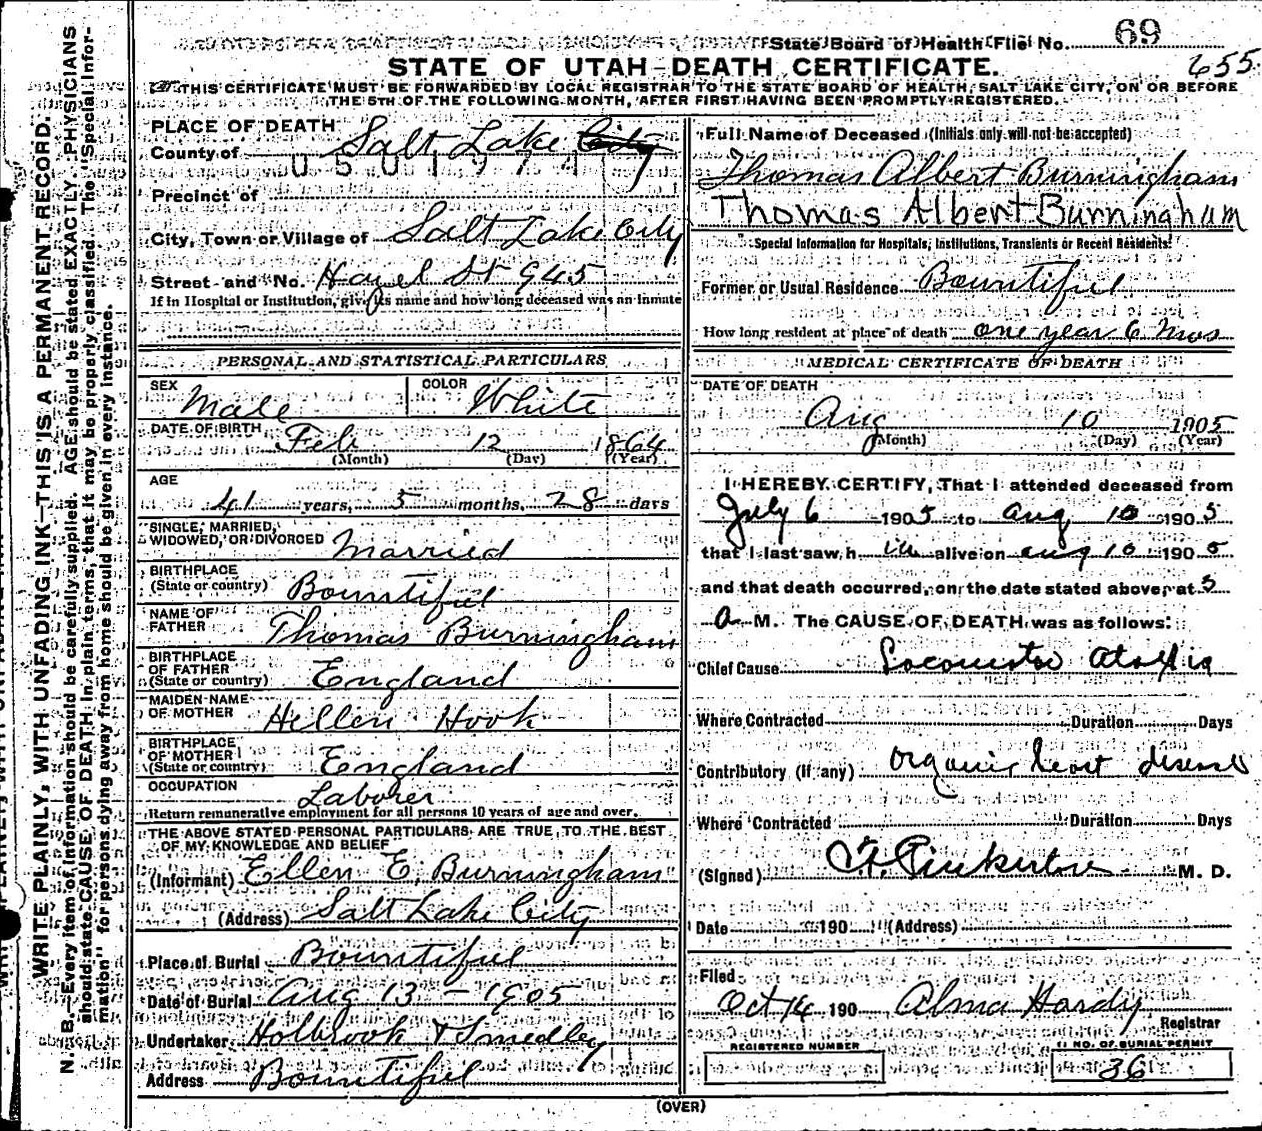 State Board of Health File No. 69
STATE OF UTAH–DEATH CERTIFICATE.
655
THIS CERTIFICATE MUST BE FORWARDED BY LOCAL REGISTRAR TO THE STATE BOARD OF HEALTH, SALT LAKE CITY, ON OR BEFORE
THE 5TH OF THE FOLLOWING MONTH, AFTER FIRST HAVING BEEN PROMPTLY REGISTERED.
WRITE PLAINLY, WITH UNFADING INK—THIS IS A PERMANENT RECORD.
N. B.—Every item of information should be carefully supplied. AGE should be stated EXACTLY. PHYSICIANS
should state CAUSE OF DEATH in plain terms, that it may be properly classified. The "Special Infor-
mation" for persons dying away from home should be given in every instance.
PLACE OF DEATH
County of Salt Lake City
Precinct of
City, Town or Village of Salt Lake City
Street and No. Hazel St 945
If in Hospital or Institution, give its name and how long deceased was an inmate
PERSONAL AND STATISTICAL PARTICULARS
SEX Male COLOR White
DATE OF BIRTH Feb 12 1864
(Month) (Day) (Year)
AGE
41 years, 5 months, 28 days
SINGLE, MARRIED,
WIDOWED, OR DIVORCED Married
BIRTHPLACE
(State or country) Bountiful
NAME OF
FATHER Thomas Burningham
BIRTHPLACE
OF FATHER
(State or country) England
MAIDEN NAME
OF MOTHER Hellen Hook
BIRTHPLACE
OF MOTHER
(State or country) England
OCCUPATION Laborer
Return remunerative employment for all persons 10 years of age and over.
THE ABOVE STATED PERSONAL PARTICULARS ARE TRUE TO THE BEST
OF MY KNOWLEDGE AND BELIEF
(Informant) Ellen E. Burningham
(Address) Salt Lake City
Place of Burial Bountiful
Date of Burial Aug 13 – 1905
Undertaker Holbrook & Smedley
Address Bountiful
Full Name of Deceased (Initials only will not be accepted)
Thomas Albert Burningham
Thomas Albert Burningham
Special Information for Hospitals, Institutions, Transients or Recent Residents:
Former or Usual Residence Bountiful
How long resident at place of death one year 6 mos
MEDICAL CERTIFICATE OF DEATH
DATE OF DEATH
Aug 10 1905
(Month) (Day) (Year)
I HEREBY CERTIFY, That I attended deceased from
July 6 1905 to Aug 10 1905
that I last saw h im alive on Aug 10 1905
and that death occurred, on the date stated above, at 5
A M. The CAUSE OF DEATH was as follows:
Chief Cause Locomotor Ataxia
Where Contracted Duration Days
Contributory (if any) Organic heart disease
Where Contracted Duration Days
(Signed) Pinkerton M. D.
Date 190 (Address)
Filed
Oct 14 190 Alma Hardy
Registrar
REGISTERED NUMBER
NO. OF BURIAL PERMIT
36
(OVER)